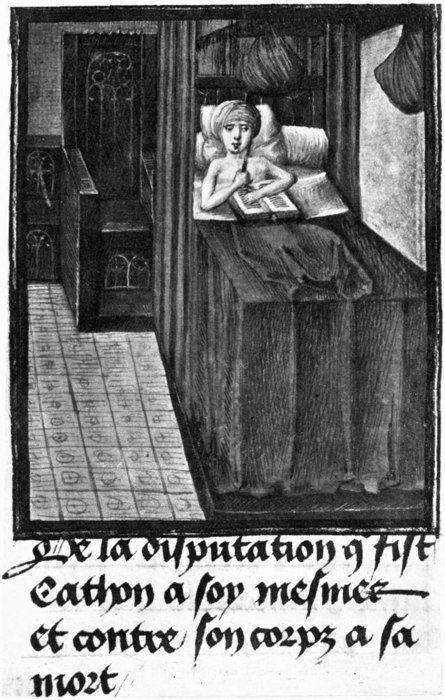 De la disputation q̄ fist
Cathon a soy mesmes
et contre son corpz a sa
mort/